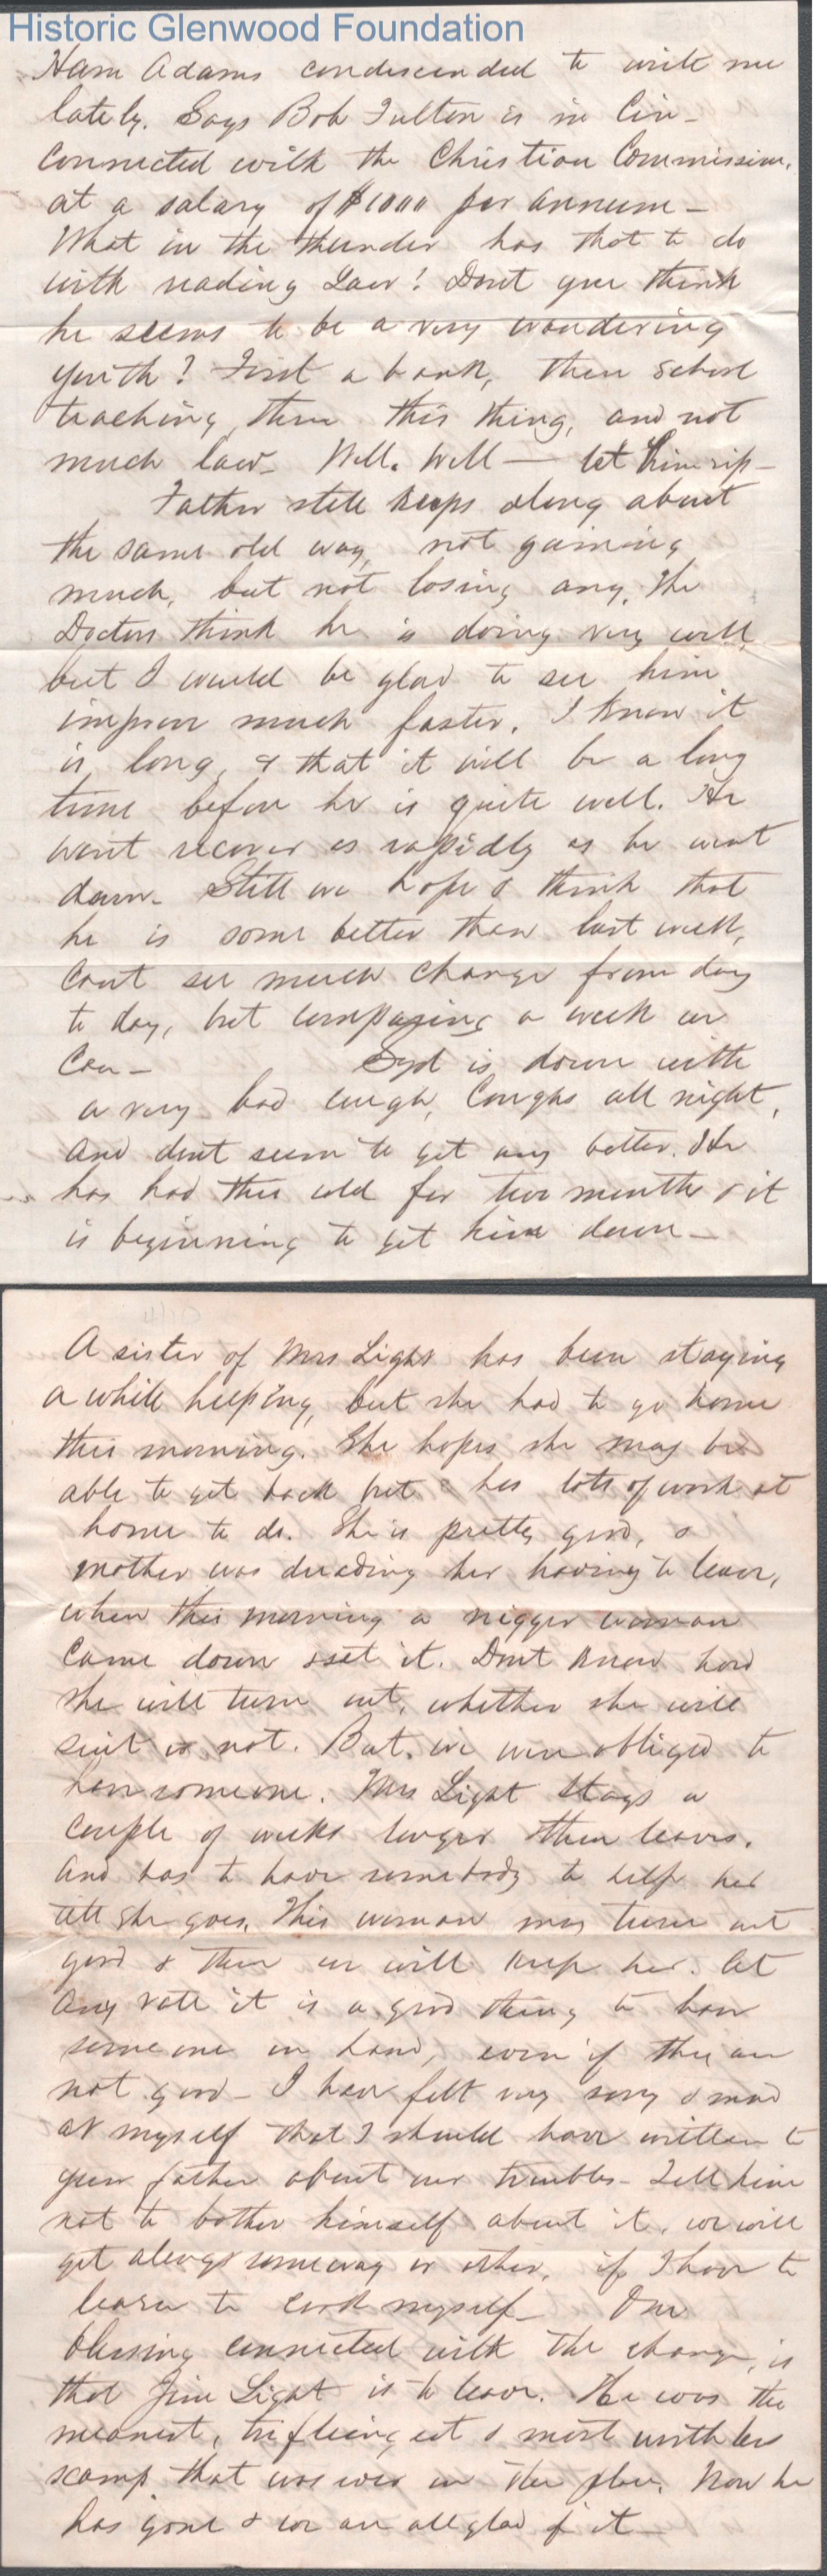 Historic Glenwood Foundation
Ham Adams condescended to write me
lately. Says Bob Fulton is in Cin-
connected with the Christian Commission,
at a salary of $1000 per annum -
What in the thunder has that to do
with reading Law! Dont you think
he seems to be a very wandering
youth? First a bank, then school
teaching, then this thing, and not
much law - Well. Well — let him rip -
Father still keeps along about
the same old way, not gaining
much, but not losing any. The
Doctors think he is doing very well,
but I would be glad to see him
improve much faster. I know it
is long, & that it will be a long
time before he is quite well. He
wont recover as rapidly as he went
down - Still we hope & think that
he is some better than last week,
Cant see much change from day
to day, but comparing a week we
Can - Syd is down with
a very bad cough, Coughs all night,
and dont seem to get any better. He
has had this cold for two months & it
is beginning to get him down -
A sister of Mrs Light has been staying
a while helping, but she had to go home
this morning. She hopes she may be
able to get back but has lots of work at
home to do. She is pretty good, &
mother was dreading her having to leave,
when this morning a nigger woman
Came down & set it. Dont know how
she will turn out, whether she will
suit or not. But, we were obliged to
have someone. Mrs Light stays a
couple of weeks longer then leaves.
and has to have somebody to help her
till she goes. This woman may turn out
good & then we will keep her. At
any rate it is a good thing to have
some one on hand, even if they are
not good - I have felt very sorry & mad
at myself that I should have written to
your father about our troubles - Tell him
not to bother himself about it, we will
get along someway or other, if I have to
learn to cook myself - One
blessing connected with the change, is
that Jim Light is to leave. He was the
meanest, triflingest & most worthless
scamp that was ever on the place. Now he
has gone & we are all glad of it -